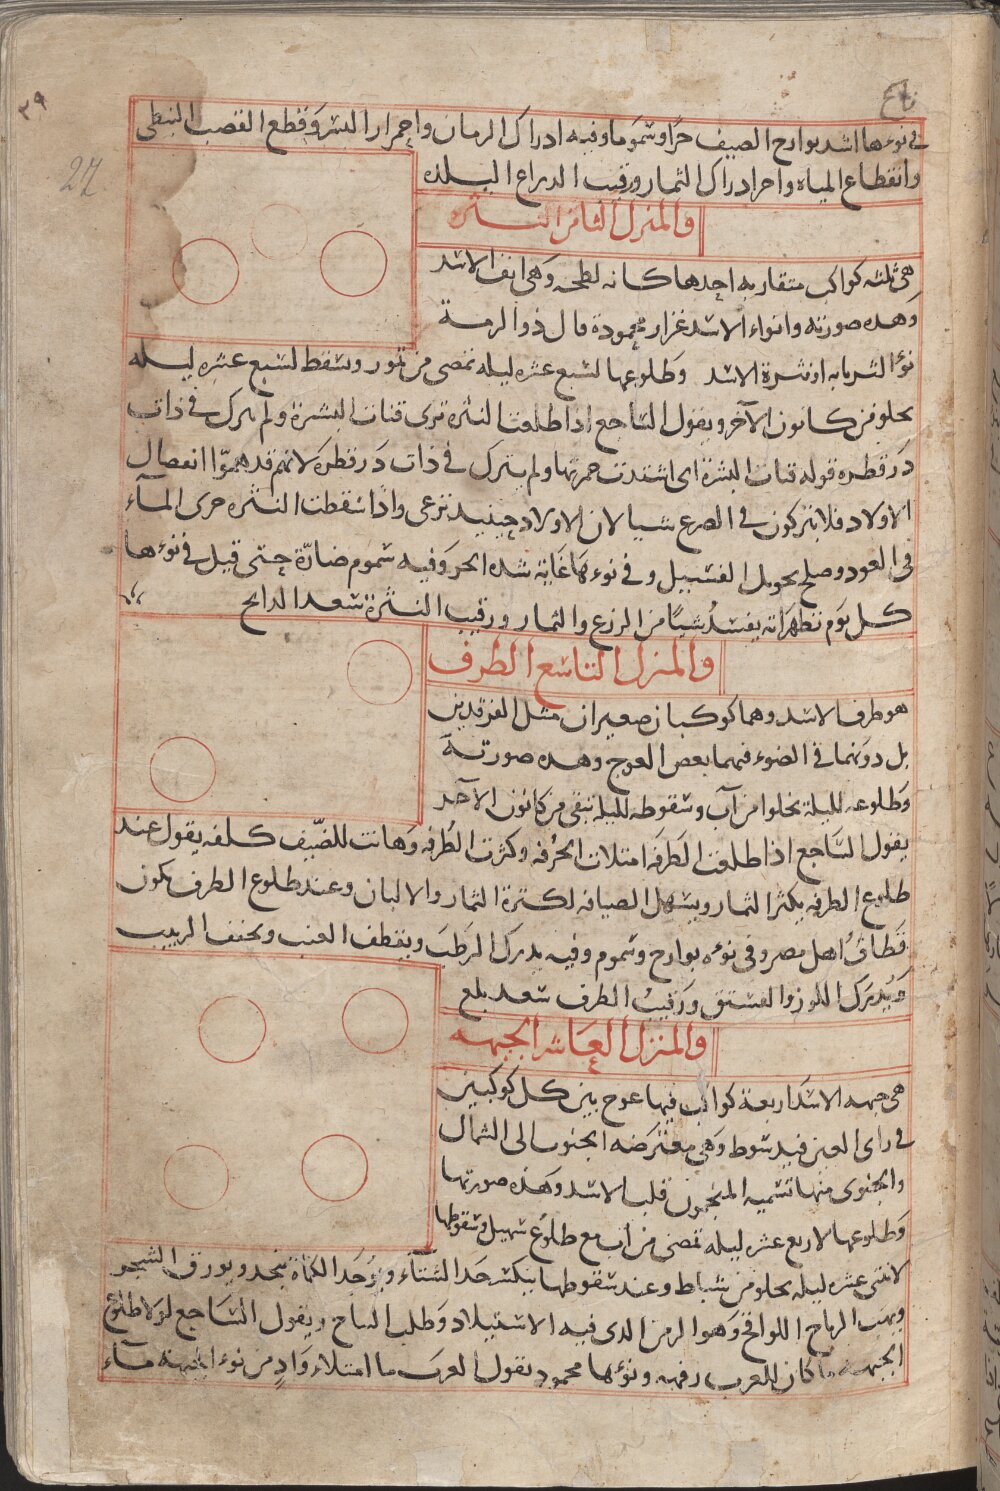 ٣٩
27
في نوءها اشد بوارح الصيف حرا وسموما وفيه ادراك الرمان واحمرار البسر وقطع القصب النبطى
وانقطاع المياه واخر ادراك الثمار ورقيب الدراع البلده
والمنزل الثامن النثره
هى ثلثه كواكب متقاربه احدها كانه لطخه وهى انف الاسد
وهده صورته وانواء الاسد غزار محمودة قال ذو الرمة
نوء الثريا به او نثرة الاسد وطلوعها لسبع عشره ليله تمضى من تموز وسقط لسبع عشره ليله
تخلو من كانون الآخر ويقول الساجع اذا طلعت النثره ترى قنات البسرة ولم يترك فى ذات
در قطره قوله قنات البسرة اى اشتدت حمرتها ولم يترك فى ذات در قطره لانهم قد هموا انفصال
الاولاد فلا يتركون فى الضرع شيا لان الاولاد حينيد ترعى واذا سقطت النثره جرى المآء
فى العود وصلح تحويل الفسيل وفى نوءها غاية شده الحر وفيه سموم ضارة حتى قيل فى نوءها
كل يوم تظهر انه يفسد شيئا من الزرع والثمار ورقيب النثرة سعد الدابح
والمنزل التاسع الطرف
هو طرف الاسد وهما كوكبان صغيران مثل الفرقدين
بل دونهما فى الضوء فيهما بعض العوج وهده صورته
وطلوعه لليلة تخلوا من آب وسقوطه لليلة تبقى من كانون الآخر
يقول الساجع اذا طلعت الطرفه امتلات الخرفه وكثرت الطرفه وهانت للضيف كلفه يقول عند
طلوع الطرفه يكثر الثمار ويسهل الضيافه لكثرة الثمار والالبان وعند طلوع الطرف يكون
قطاف اهل مصر وفى نوءه بوارح وسموم وفيه يدرك الرطب ويقطف العنب ويجفف الزبيب
ويدرك اللوز والفستق ورقيب الطرف سعد بلع
والمنزل العاشر الجبهه
هى جبهه الاسد اربعة كواكب فيها عوج بين كل كوكبين
فى راى العين قيد سوط وهى معترضه الجنوب الى الشمال
والجنوبى منها تسميه المنجمون قلب الاسد وهذه صورتها
وطلوعها لاربع عشره ليله تمضى من آب مع طلوع سهيل وسقوطها
لاثنى عشره ليله تخلو من شباط وعند سقوطها ينكسر حد الشتآء ويوجد الكمأة بنجد ويورق الشجر
ويهب الرياح اللواقح وهو الزمن الدى فيه الاستيلاد وطلب النتاج ويقول الساجع لولا طلوع
الجبهه ما كان للعرب رفهه ونوءها محمود يقول العرب ما امتلاء واد من نوء الجبهه مآء